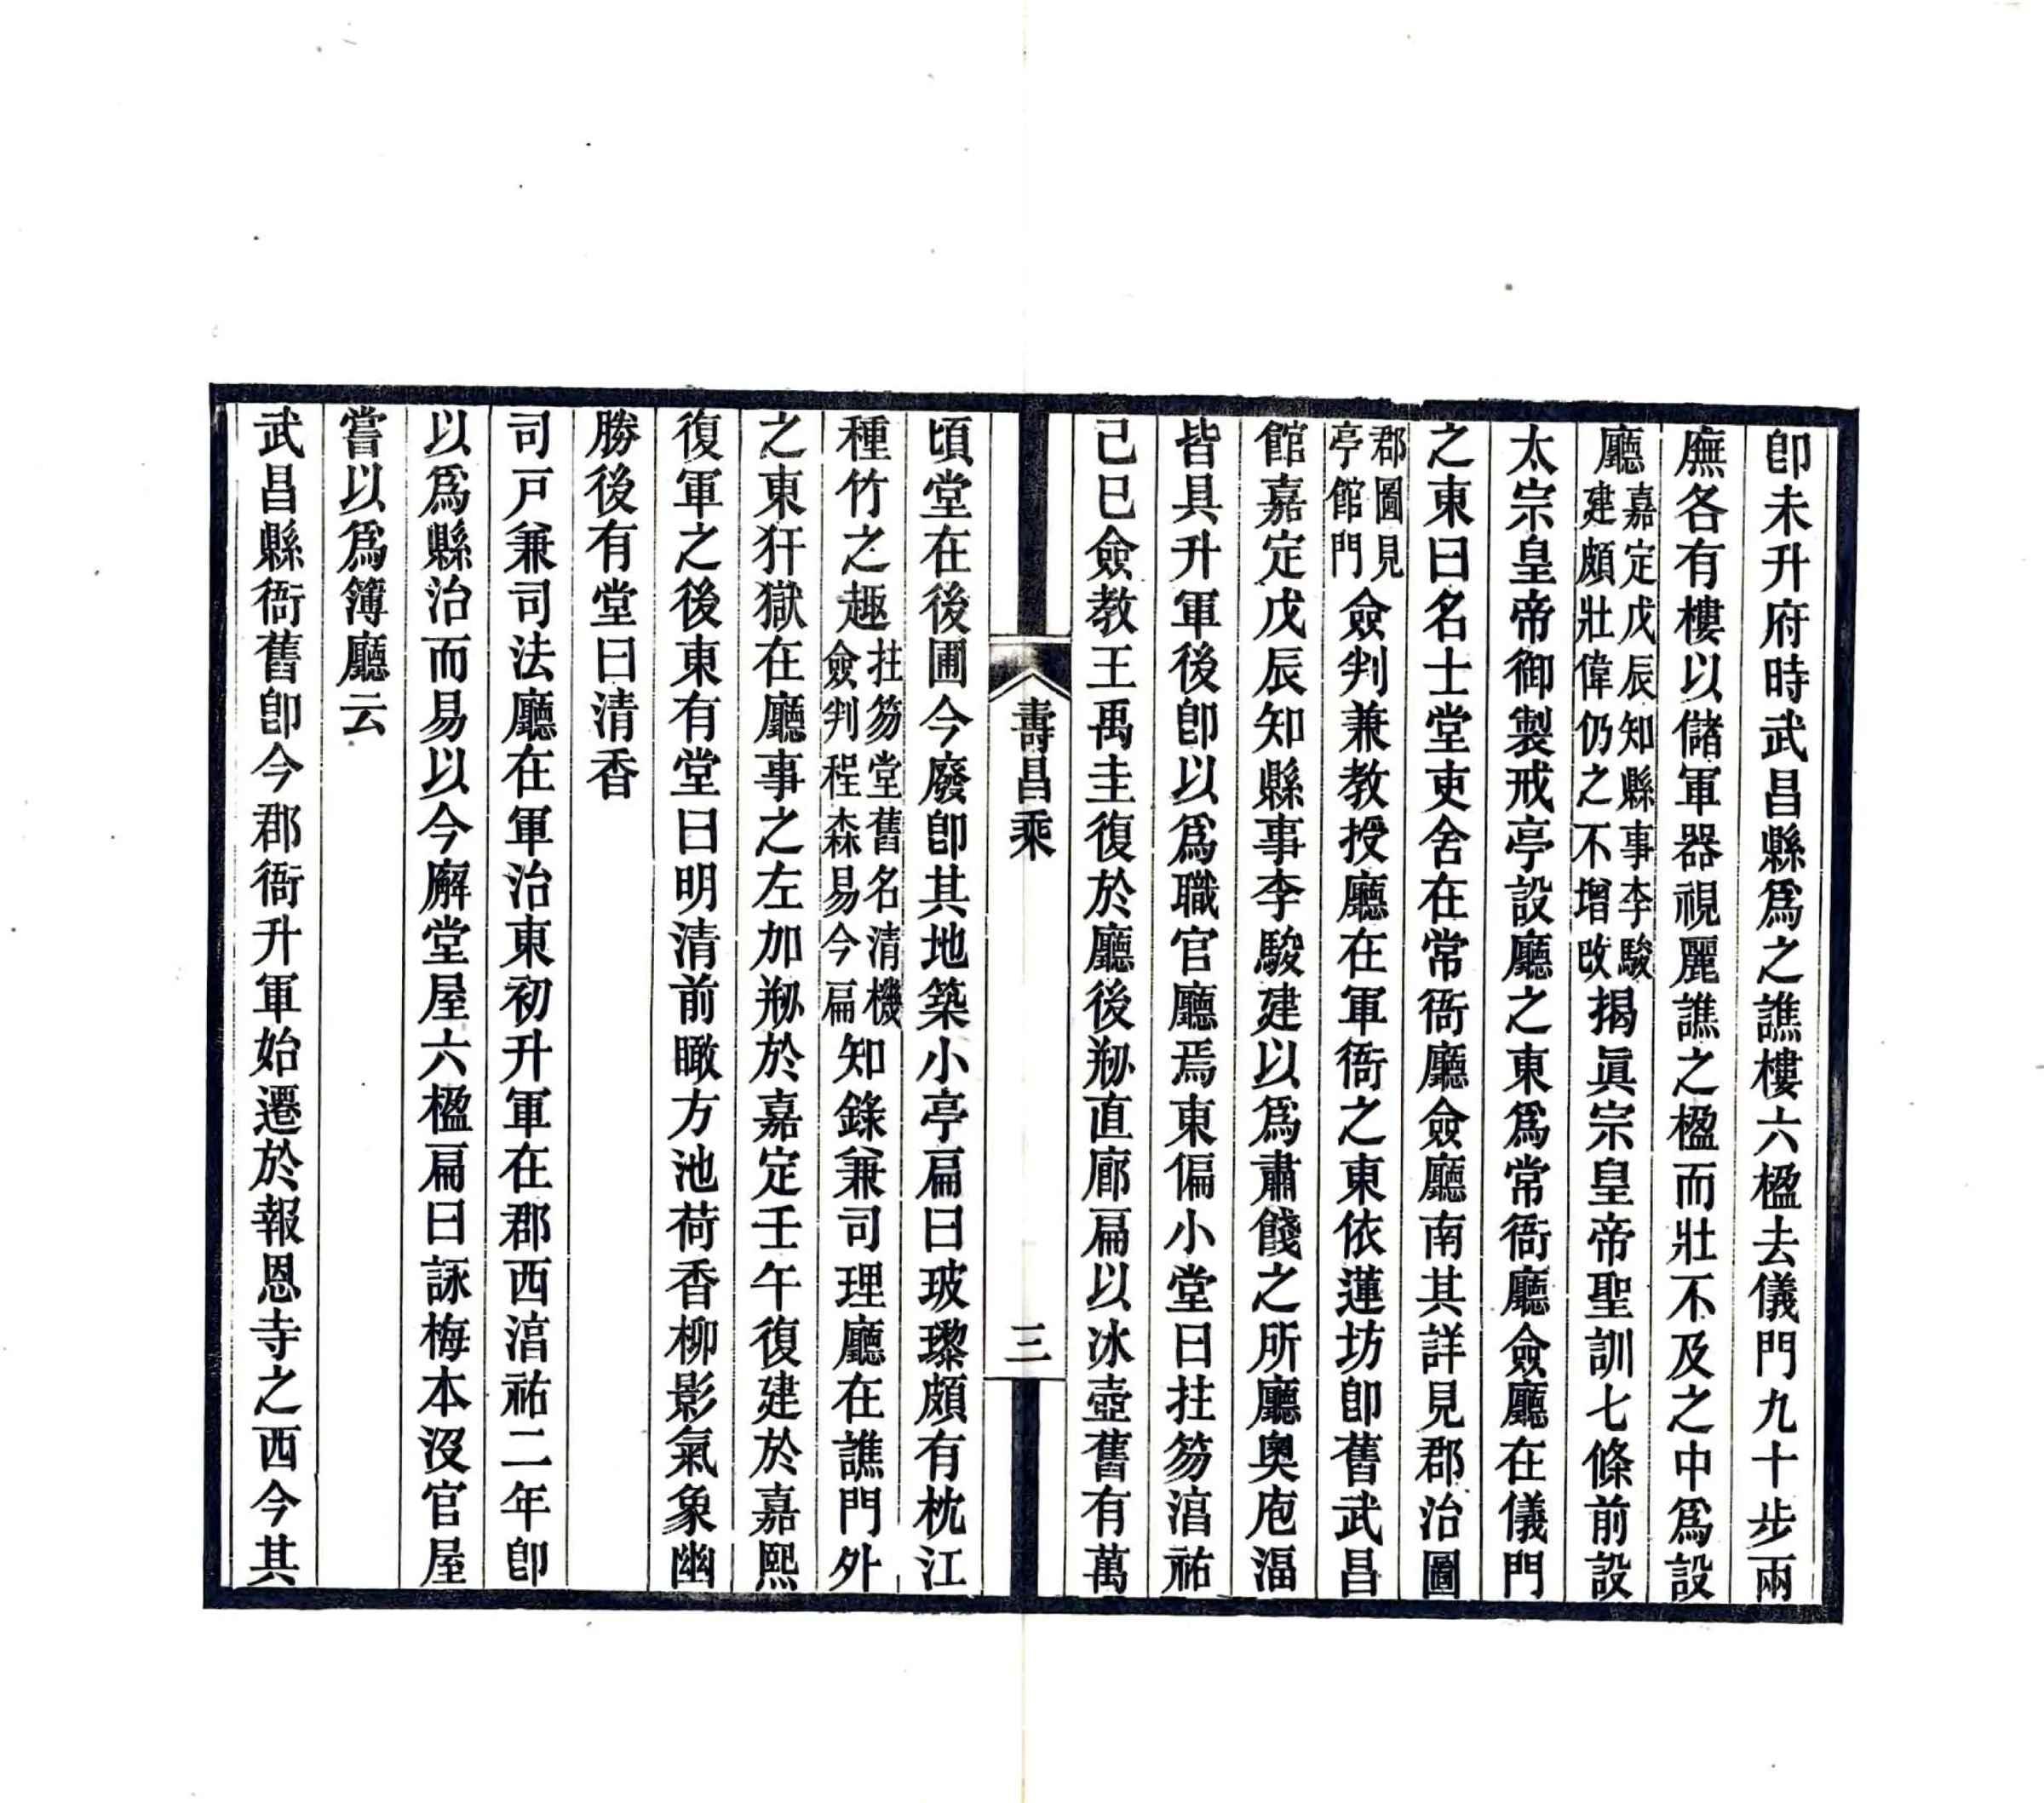 卽未升府時武昌縣爲之譙樓六楹去儀門九十步兩
廡各有樓以儲軍器視麗譙之楹而壯不及之中爲設
廳嘉定戊辰知縣事李駿建頗壯偉仍之不增改揭眞宗皇帝聖訓七條前設
太宗皇帝御製戒亭設廳之東爲常衙廳僉廳在儀門
之東曰名士堂吏舍在常衙廳僉廳南其詳見郡治圖
郡圖見亭館門僉判兼教授廳在軍衙之東依蓮坊卽舊武昌
館嘉定戊辰知縣事李駿建以爲肅餞之所廳奧庖湢
皆具升軍後卽以爲職官廳焉東偏小堂曰拄笏湻祐
己巳僉教王禹圭復於廳後剏直廊扁以冰壺舊有萬
壽昌乘
三
頃堂在後圃今廢卽其地築小亭扁曰玻瓈頗有枕江
種竹之趣拄笏堂舊名清機僉判程森易今扁知錄兼司理廳在譙門外
之東犴獄在廳事之左加剏於嘉定壬午復建於嘉熙
復軍之後東有堂曰明清前瞰方池荷香柳影氣象幽
勝後有堂曰清香
司戸兼司法廳在軍治東初升軍在郡西湻祐二年卽
以爲縣治而易以今廨堂屋六楹扁曰詠梅本沒官屋
嘗以爲簿廳云
武昌縣衙舊卽今郡衙升軍始遷於報恩寺之西今其